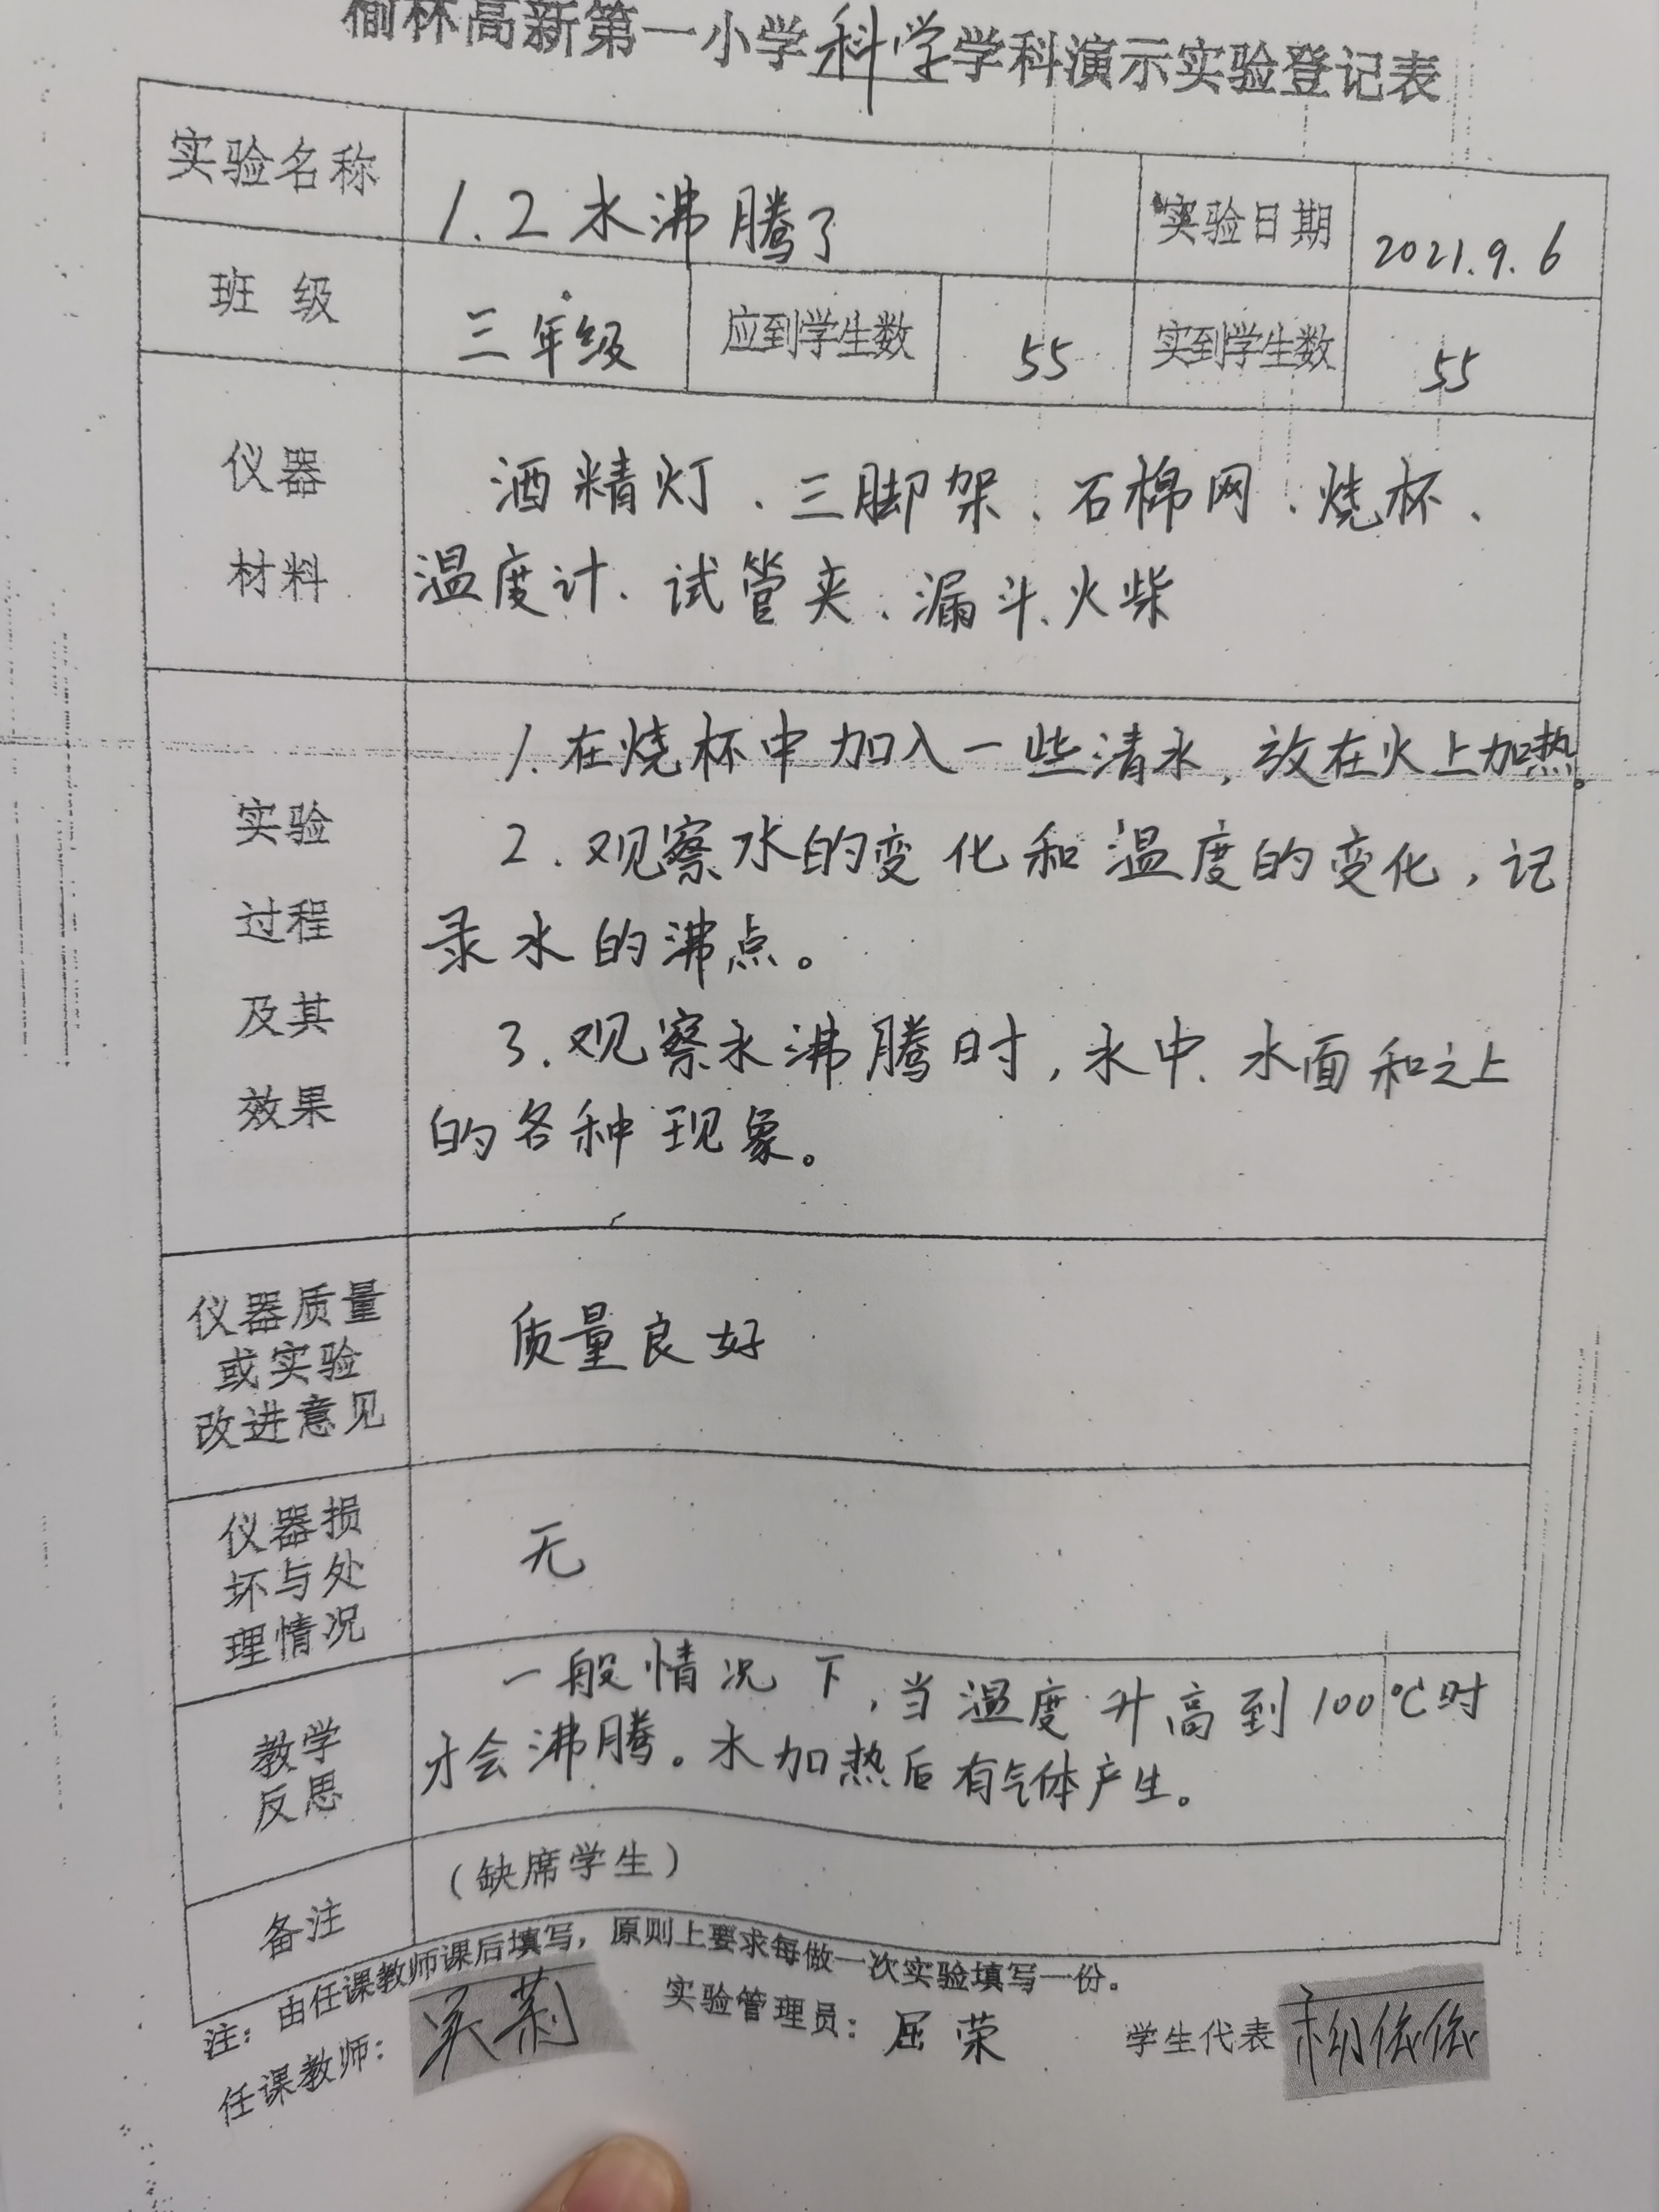 榆林高新第一小学科学学科演示实验登记表
实验名称 1.2水沸腾了 实验日期 2021.9.6
班级 三年级 应到学生数 55 实到学生数 55
仪器
材料
酒精灯、三脚架、石棉网、烧杯、
温度计、试管夹、漏斗、火柴
实验
过程
及其
效果
1.在烧杯中加入一些清水,放在火上加热。
2.观察水的变化和温度的变化,记
录水的沸点。
3.观察水沸腾时,水中、水面和之上
的各种现象。
仪器质量
或实验
改进意见
质量良好
仪器损
坏与处
理情况
无
教学
反思
一般情况下,当温度升高到100℃时
才会沸腾。水加热后有气体产生。
备注
(缺席学生)
注:由任课教师课后填写,原则上要求每做一次实验填写一份。
任课教师:吴莉 实验管理员:屈荣 学生代表 柳依依